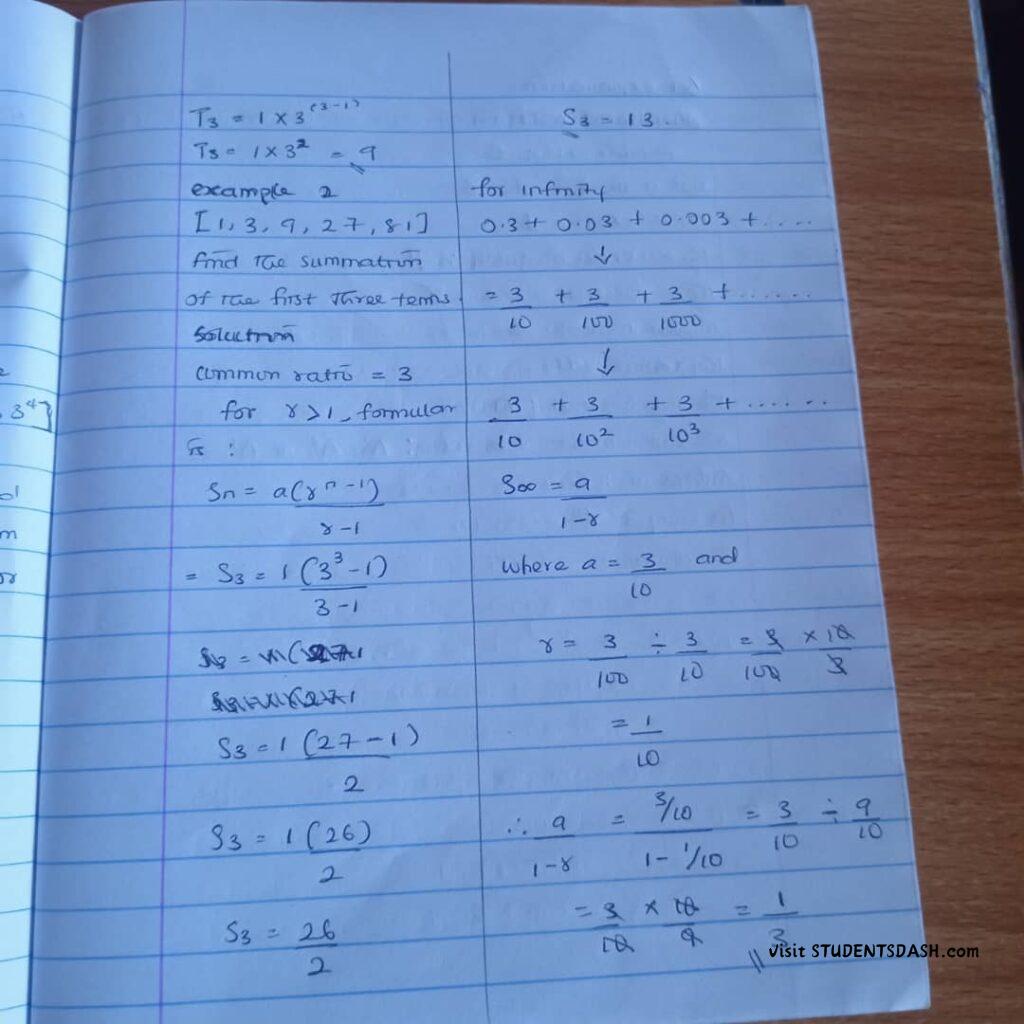 T3 = 1 × 3^(3-1)
T3 = 1 × 3^2 = 9
example 2
[1, 3, 9, 27, 81]
find the summation
of the first three terms.
solution
common ratio = 3
for r > 1, formular
is :
Sn = a(r^n - 1)
r - 1
= S3 = 1 (3^3 - 1)
3 - 1
S3 = 1 (27 - 1)
2
S3 = 1 (26)
2
S3 = 26
2
S3 = 13.
for infinity
0.3 + 0.03 + 0.003 + .....
↓
= 3/10 + 3/100 + 3/1000 + ......
↓
3/10 + 3/10^2 + 3/10^3 + ......
S∞ = a
1 - r
where a = 3/10 and
r = 3/100 ÷ 3/10 = 3/100 × 10/3
= 1/10
∴ a/1-r = 3/10 / 1 - 1/10 = 3/10 ÷ 9/10
= 3/10 × 10/9 = 1/3
visit STUDENTSDASH.com
2
3^4}